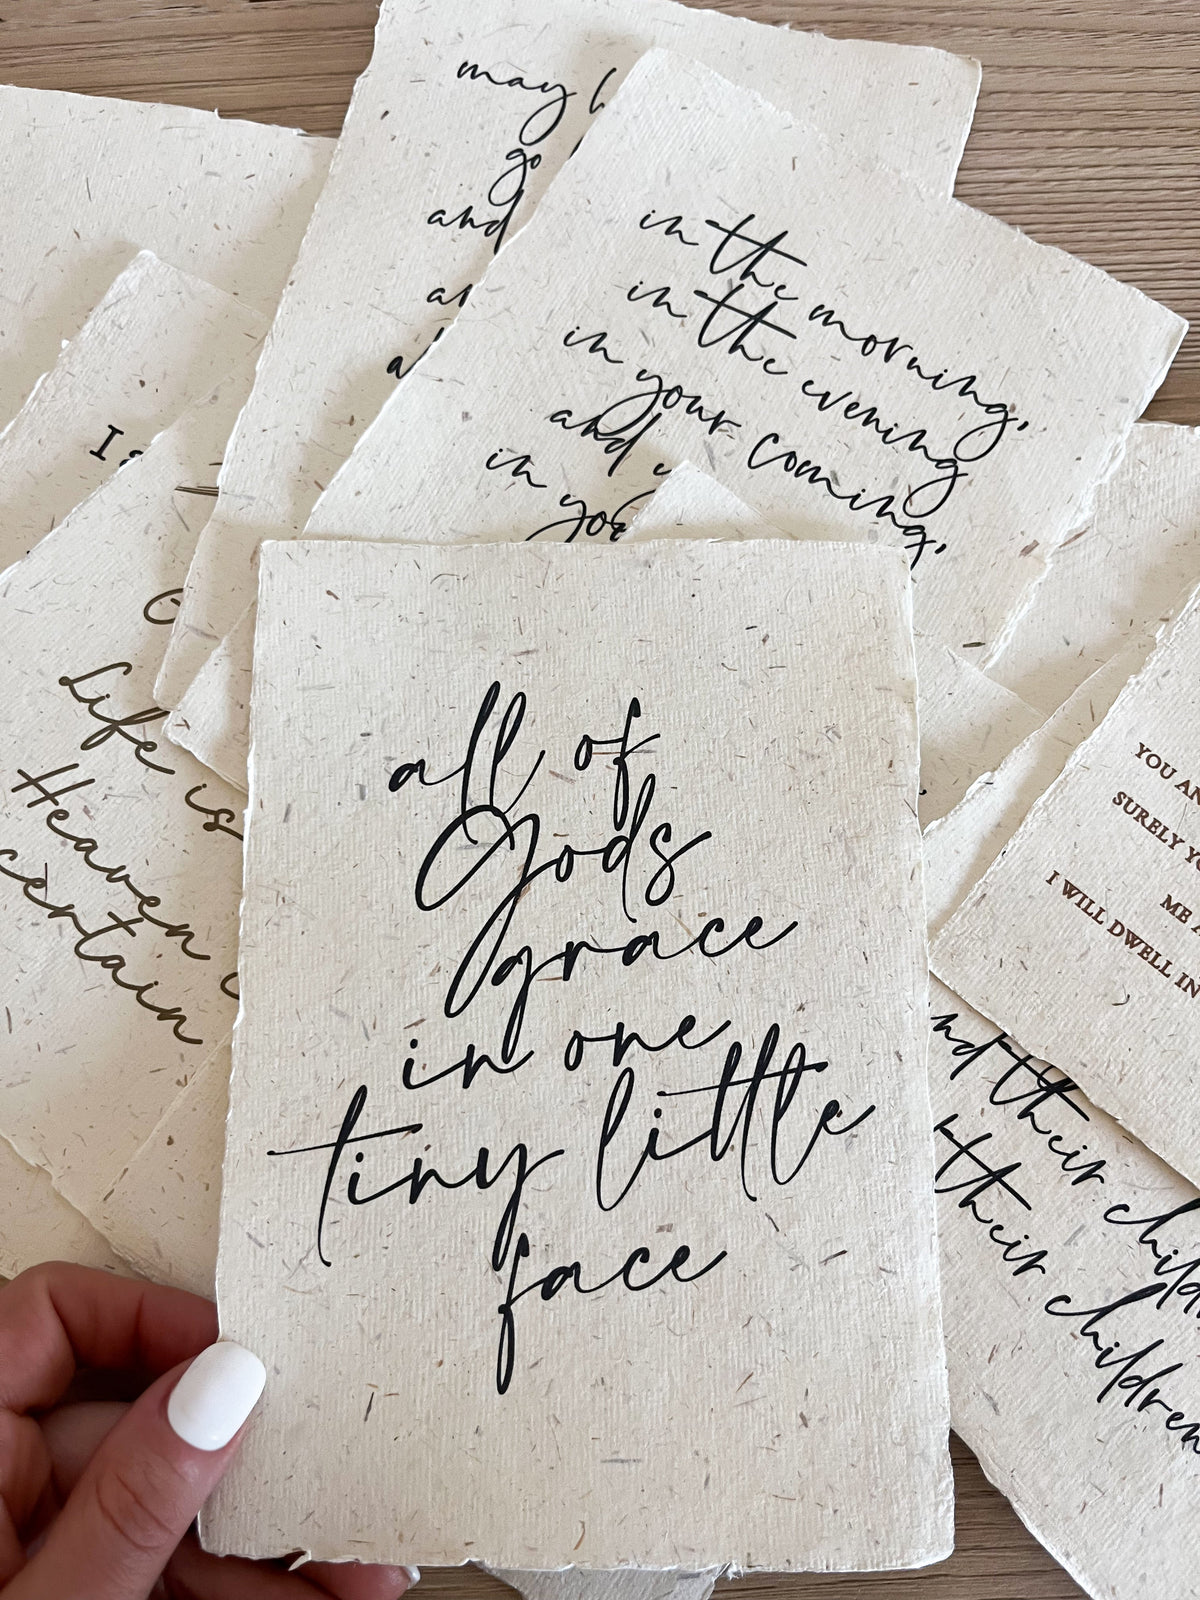 may
go
and
in the morning,
in the evening
in your coming,
and
in
I
Life is
Heaven
certain
all of
Gods
grace
in one
tiny little
face
YOU
SURELY
ME
I WILL DWELL IN
their
their children